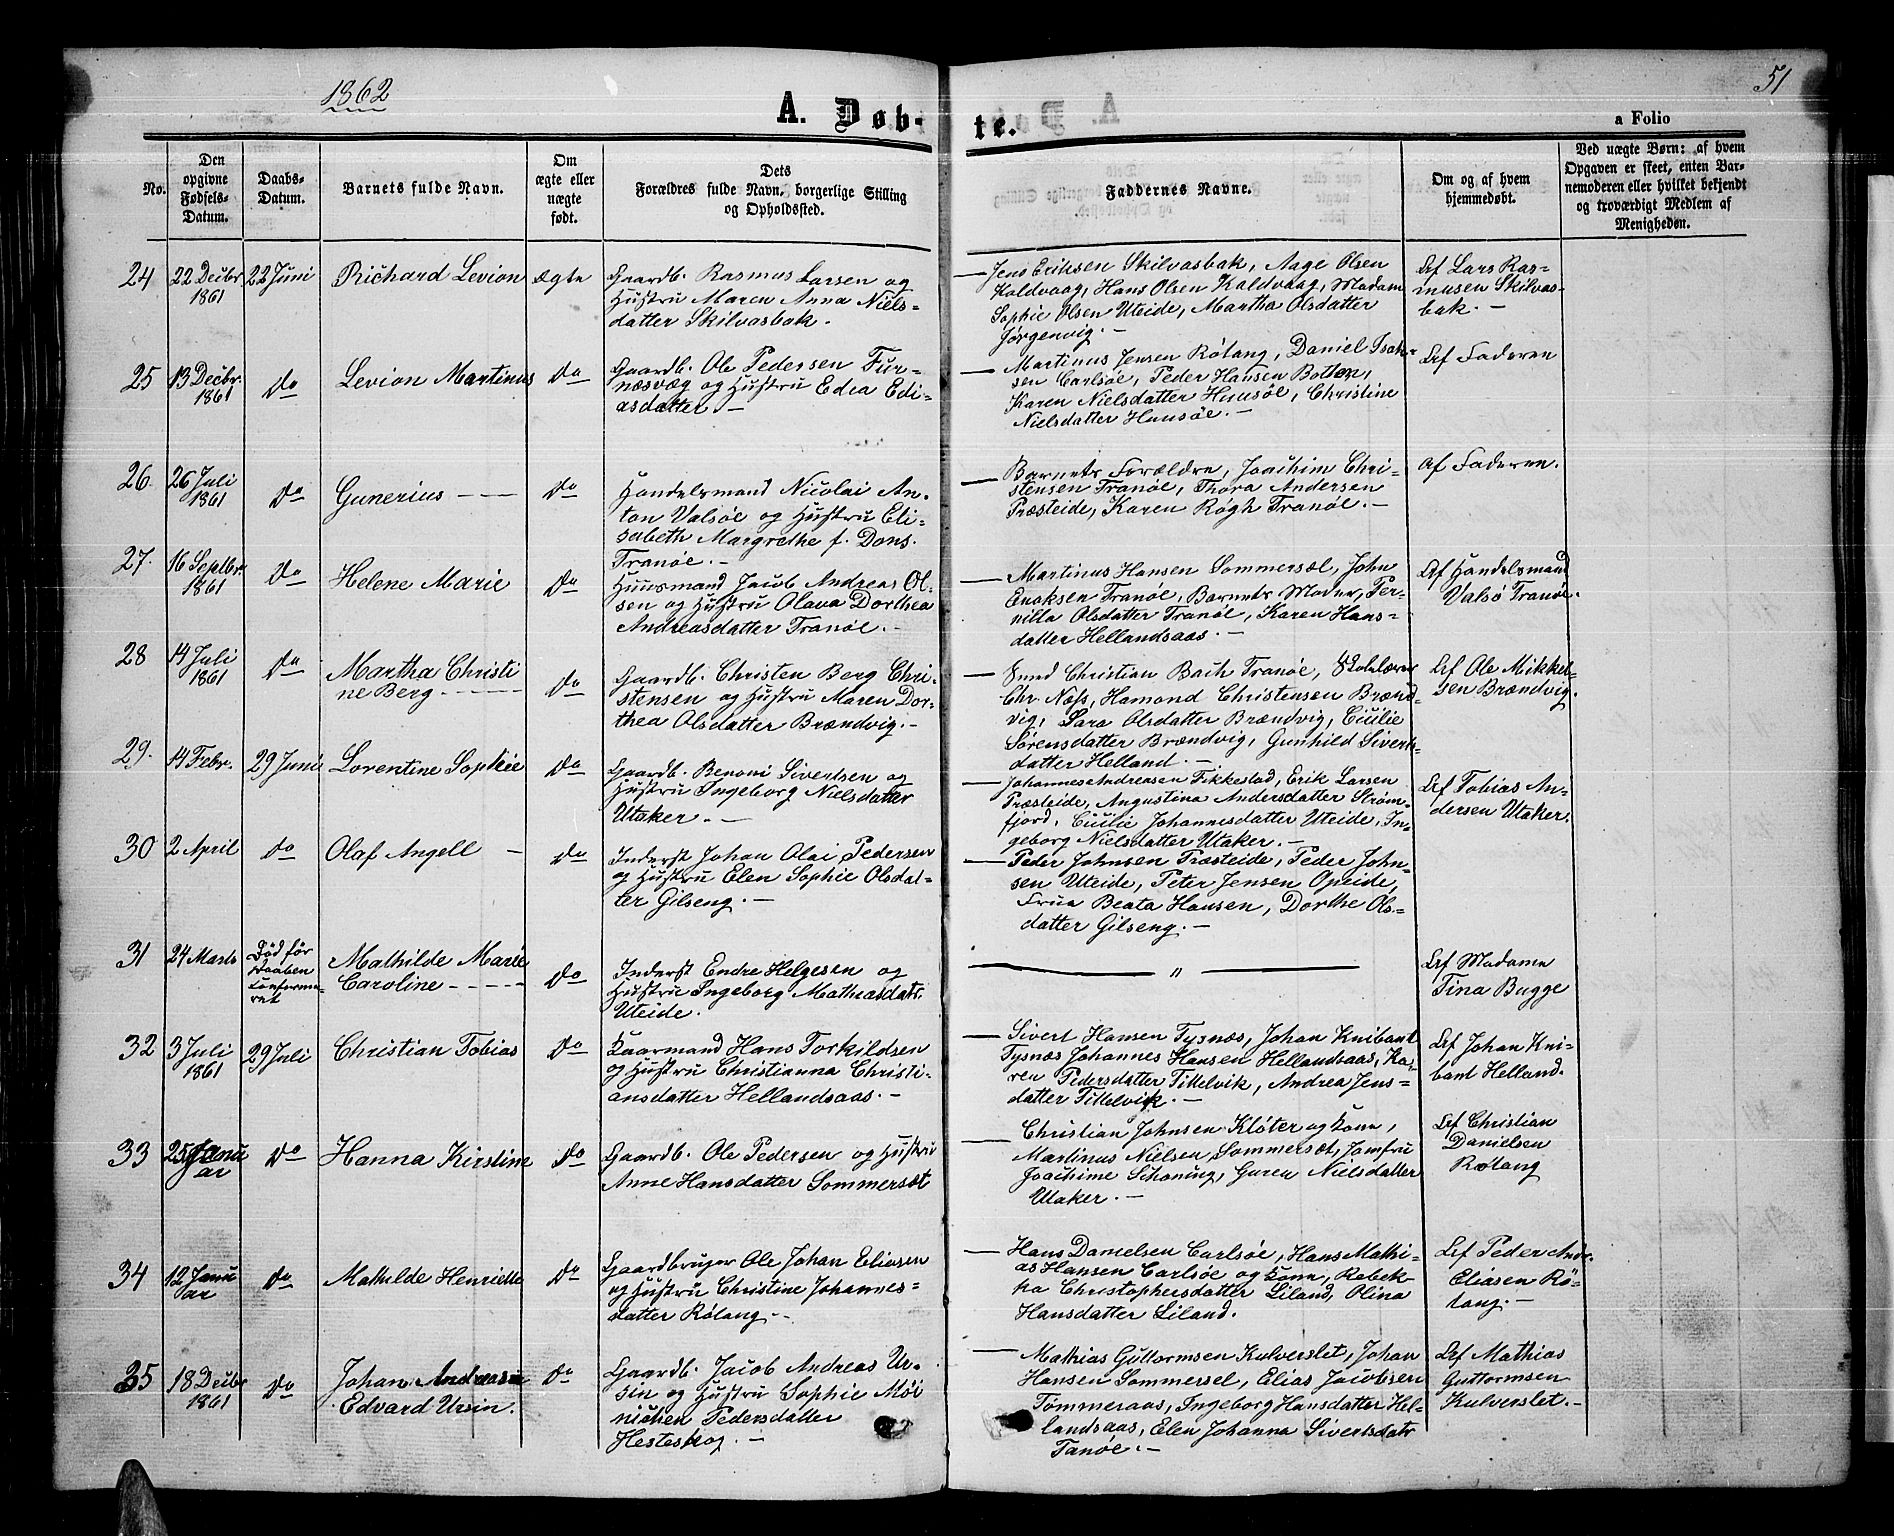 1862
51
A. Døb-
te.
a Folio
No.
Den opgivne Fødsels-Datum.
Daabs-Datum.
Barnets fulde Navn.
Om ægte eller nægte født.
Dets Forældres fulde Navn, borgerlige Stilling og Opholdssted.
Faddernes Navne.
Om og af hvem hjemmedøbt.
Ved uægte Børn: af hvem Opgaven er skeet, enten Barnemoderen eller hvilket bekjendt og troværdigt Medlem af Menigheden.
24
22 Decbr
1861
22 Juni
Richard Levion
ægte
Gaardb. Rasmus Larsen og
Hustru Maren Anna Niels-
datter Skilvasbak.
— Jens Eriksen Skilvasbak, Aage Olsen
Kaldvaag, Hans Olsen Kaldvaag, Madam
Sophie Olsen Uteide, Martha Olsdatter
Jørgenvig. —
Af Lars Ras-
musen Skilvas-
bak. —
25
13 Decbr.
1861
do
Levion Martinus
do
Gaardb. Ole Pedersen Fur-
næsvæg og Hustru Edea Edi-
asdatter —
— Martinus Jensen Røtang, Daniel Isak-
sen Carlsøe, Peder Hansen Botten,
Karen Nielsdatter Huusøe, Christine
Nielsdatter Huusøe. —
Af Faderen
26.
26 Juli
1861
do
Gunerius — —
do
Handelsmand Nicolai An-
ton Valsøe og Hustru Eli-
sabeth Margrethe f. Dons.
Tranøe. —
— Barnets Forældre, Joachim Chri-
stensen Tranøe, Thora Andersen
Præsteide, Karen Røgh Tranøe. —
Af Faderen.
27.
16 Septbr.
1861
do
Helene Marie
do
Huusmand Jacob Andreas Ol-
sen og Hustru Olava Dorthea
Andreasdatter Tranøe. —
— Martinus Hansen Sommersæl, John
Enoksen Tranøe, Barnets Moder, Per-
nilla Olsdatter Tranøe, Karen Hans-
datter Hellandsaas. —
Af Handelsmand
Valsø Tranøe.
28
14 Juli
1861
do
Martha Christi
ne Berg - - - -
do
Gaardb. Christen Berg Chri-
stensen og Hustru Maren Dor-
thea Olsdatter Brændvig. —
— Christian Bach Tranøe, Skolelærer
Chr. Næss, Hamond Christensen Brænd-
vig, Sara Olsdatter Brændvig, Cicilie
Sørensdatter Brændvig, Gunhild Siverts-
datter Helland. —
Af Ole Mikkel-
sen Brændvig.
29.
14 Febr.
29 Juni
Lorentine Sophie
do
Gaardb. Benoni Sivertsen og
Hustru Ingeborg Nielsdatter
Utaker. —
Johannes Andreasen Fikkestad, Erik Larsen
Præsteide, Augustina Andersdatter Strøm-
fjord, Cicilie Johannesdatter Uteide, In-
geborg Nielsdatter Utaker. —
Af Tobias An-
dersen Utaker.
30
2 April
do
Olaf Angell —
do
Inderst Johan Olai Pedersen
og Hustru Elen Sophie Olsdat-
ter Gilseng. —
— Peder Johnsen Præsteide, Peder John-
sen Uteide, Peter Jensen Opeide,
Frua Beata Hansen, Dorthe Ols-
datter Gilseng. —
31
24 Marts
Død før
Daaben
Confirme-
ret
Mathilde Marie
Caroline - - - -
do
Inderst Endre Helgesen og
Hustru Ingeborg Mathiasdatr.
Uteide.
— " —
Af Madame
Tina Bugge
32
3 Juli
1861
29 Juli
Christian Tobias
do
Kaarmand Hans Torkildsen
og Hustru Christianna Christi-
ansdatter Hellandsaas. —
— Sivert Hansen Tysnæs, Johan Knibant
Tysnæs, Johannes Hansen Hellandsaas, Ka-
ren Pedersdatter Tittelvik, Andrea Jens-
datter Tittelvik. —
Af Johan Kni-
bant Helland.
33
25 Janu
ar
do
Hanna Kirstine
do
Gaardb. Ole Pedersen og Hustru
Anne Hansdatter Sommersæt
Christian Johnsen Kløter og Kone,
— Martinus Nielsen Sommersæt, Jomfru
Joachime Schøning, Guren Nielsdatter
Utaker. —
Af Christian
Danielsen
Røtang
34
12 Janu
ar
do
Mathilde Henriette
do
Gaardbruger Ole Johan Eliasen
og Hustru Christine Johannes-
datter Røtang. —
— Hans Danielsen Carlsøe, Hans Mathi-
as Hansen Carlsøe og Kone, Rebek-
ka Christophersdatter Liland, Olina
Hansdatter Liland.
Af Peder Andr.
Eliasen Rø-
tang. —
35
18 Decbr
1861
do
Johan Andreas
Edvard Ursin.
do
Gaardb. Jacob Andreas Ur-
sin og Hustru Sophie Møi
nichen Pedersdatter
Hesteskog. —
— Mathias Guttormsen Kulverslet, Johan
Hansen Sommersel, Elias Jacobsen
Tømmeraas, Ingeborg Hansdatter Hel-
landsaas, Elen Johanna Sivertsdatr
Tanøe. —
Af Mathias
Guttormsen
Kulverslet. —